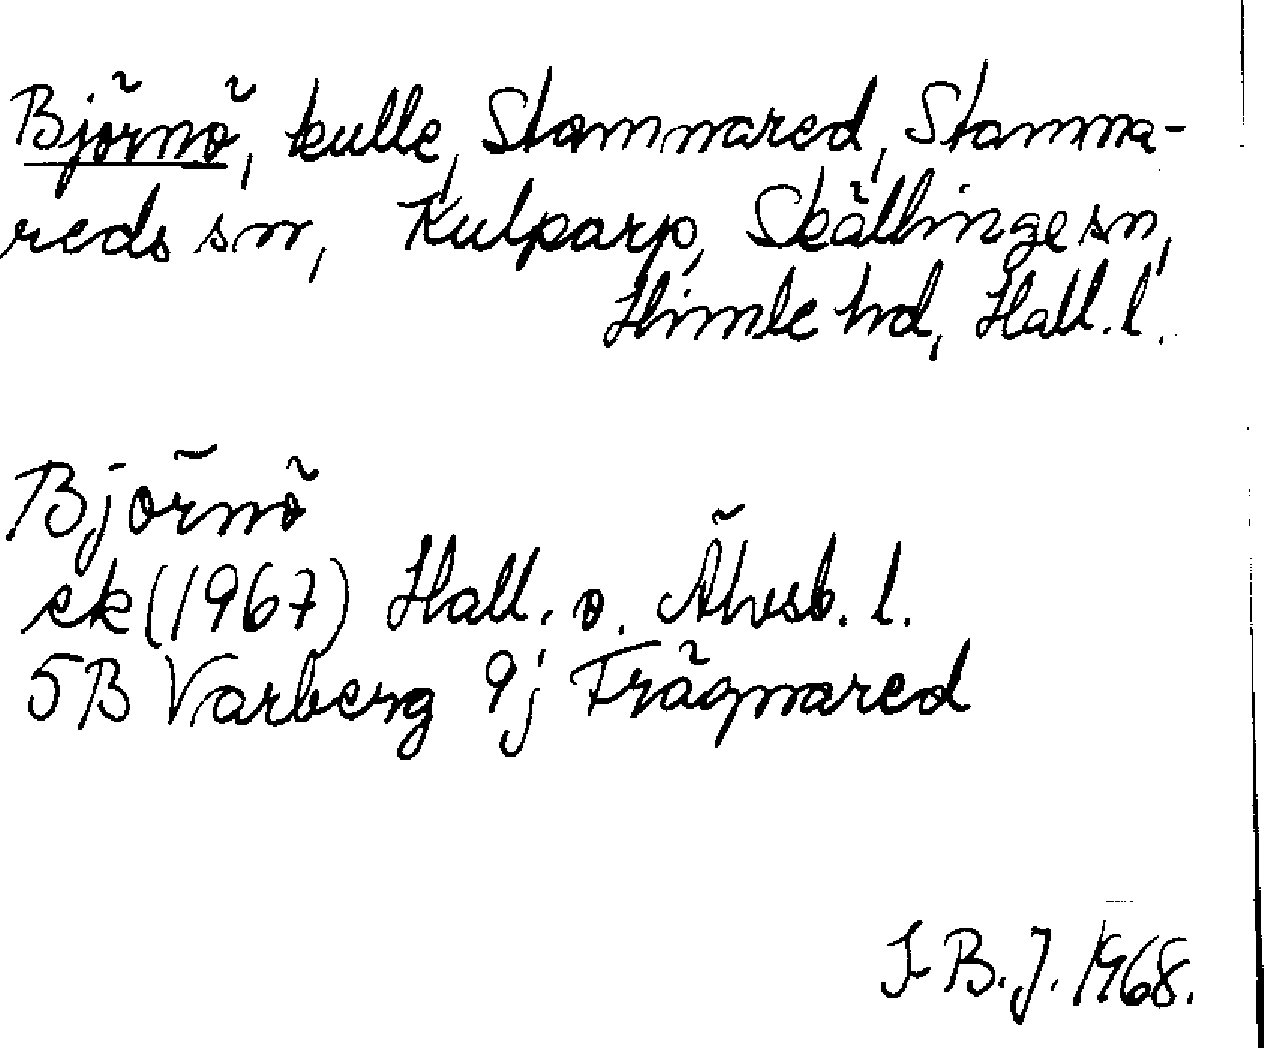 Björnö, kulle, Stammared, Stamma-
reds sn, Kulparp, Skällinge sn,
Himle hd, Hall. l.
Björnö
ek (1967) Hall. o. Älvsb. l.
5B Varberg 9j Frägnared
F B. J. 1968.